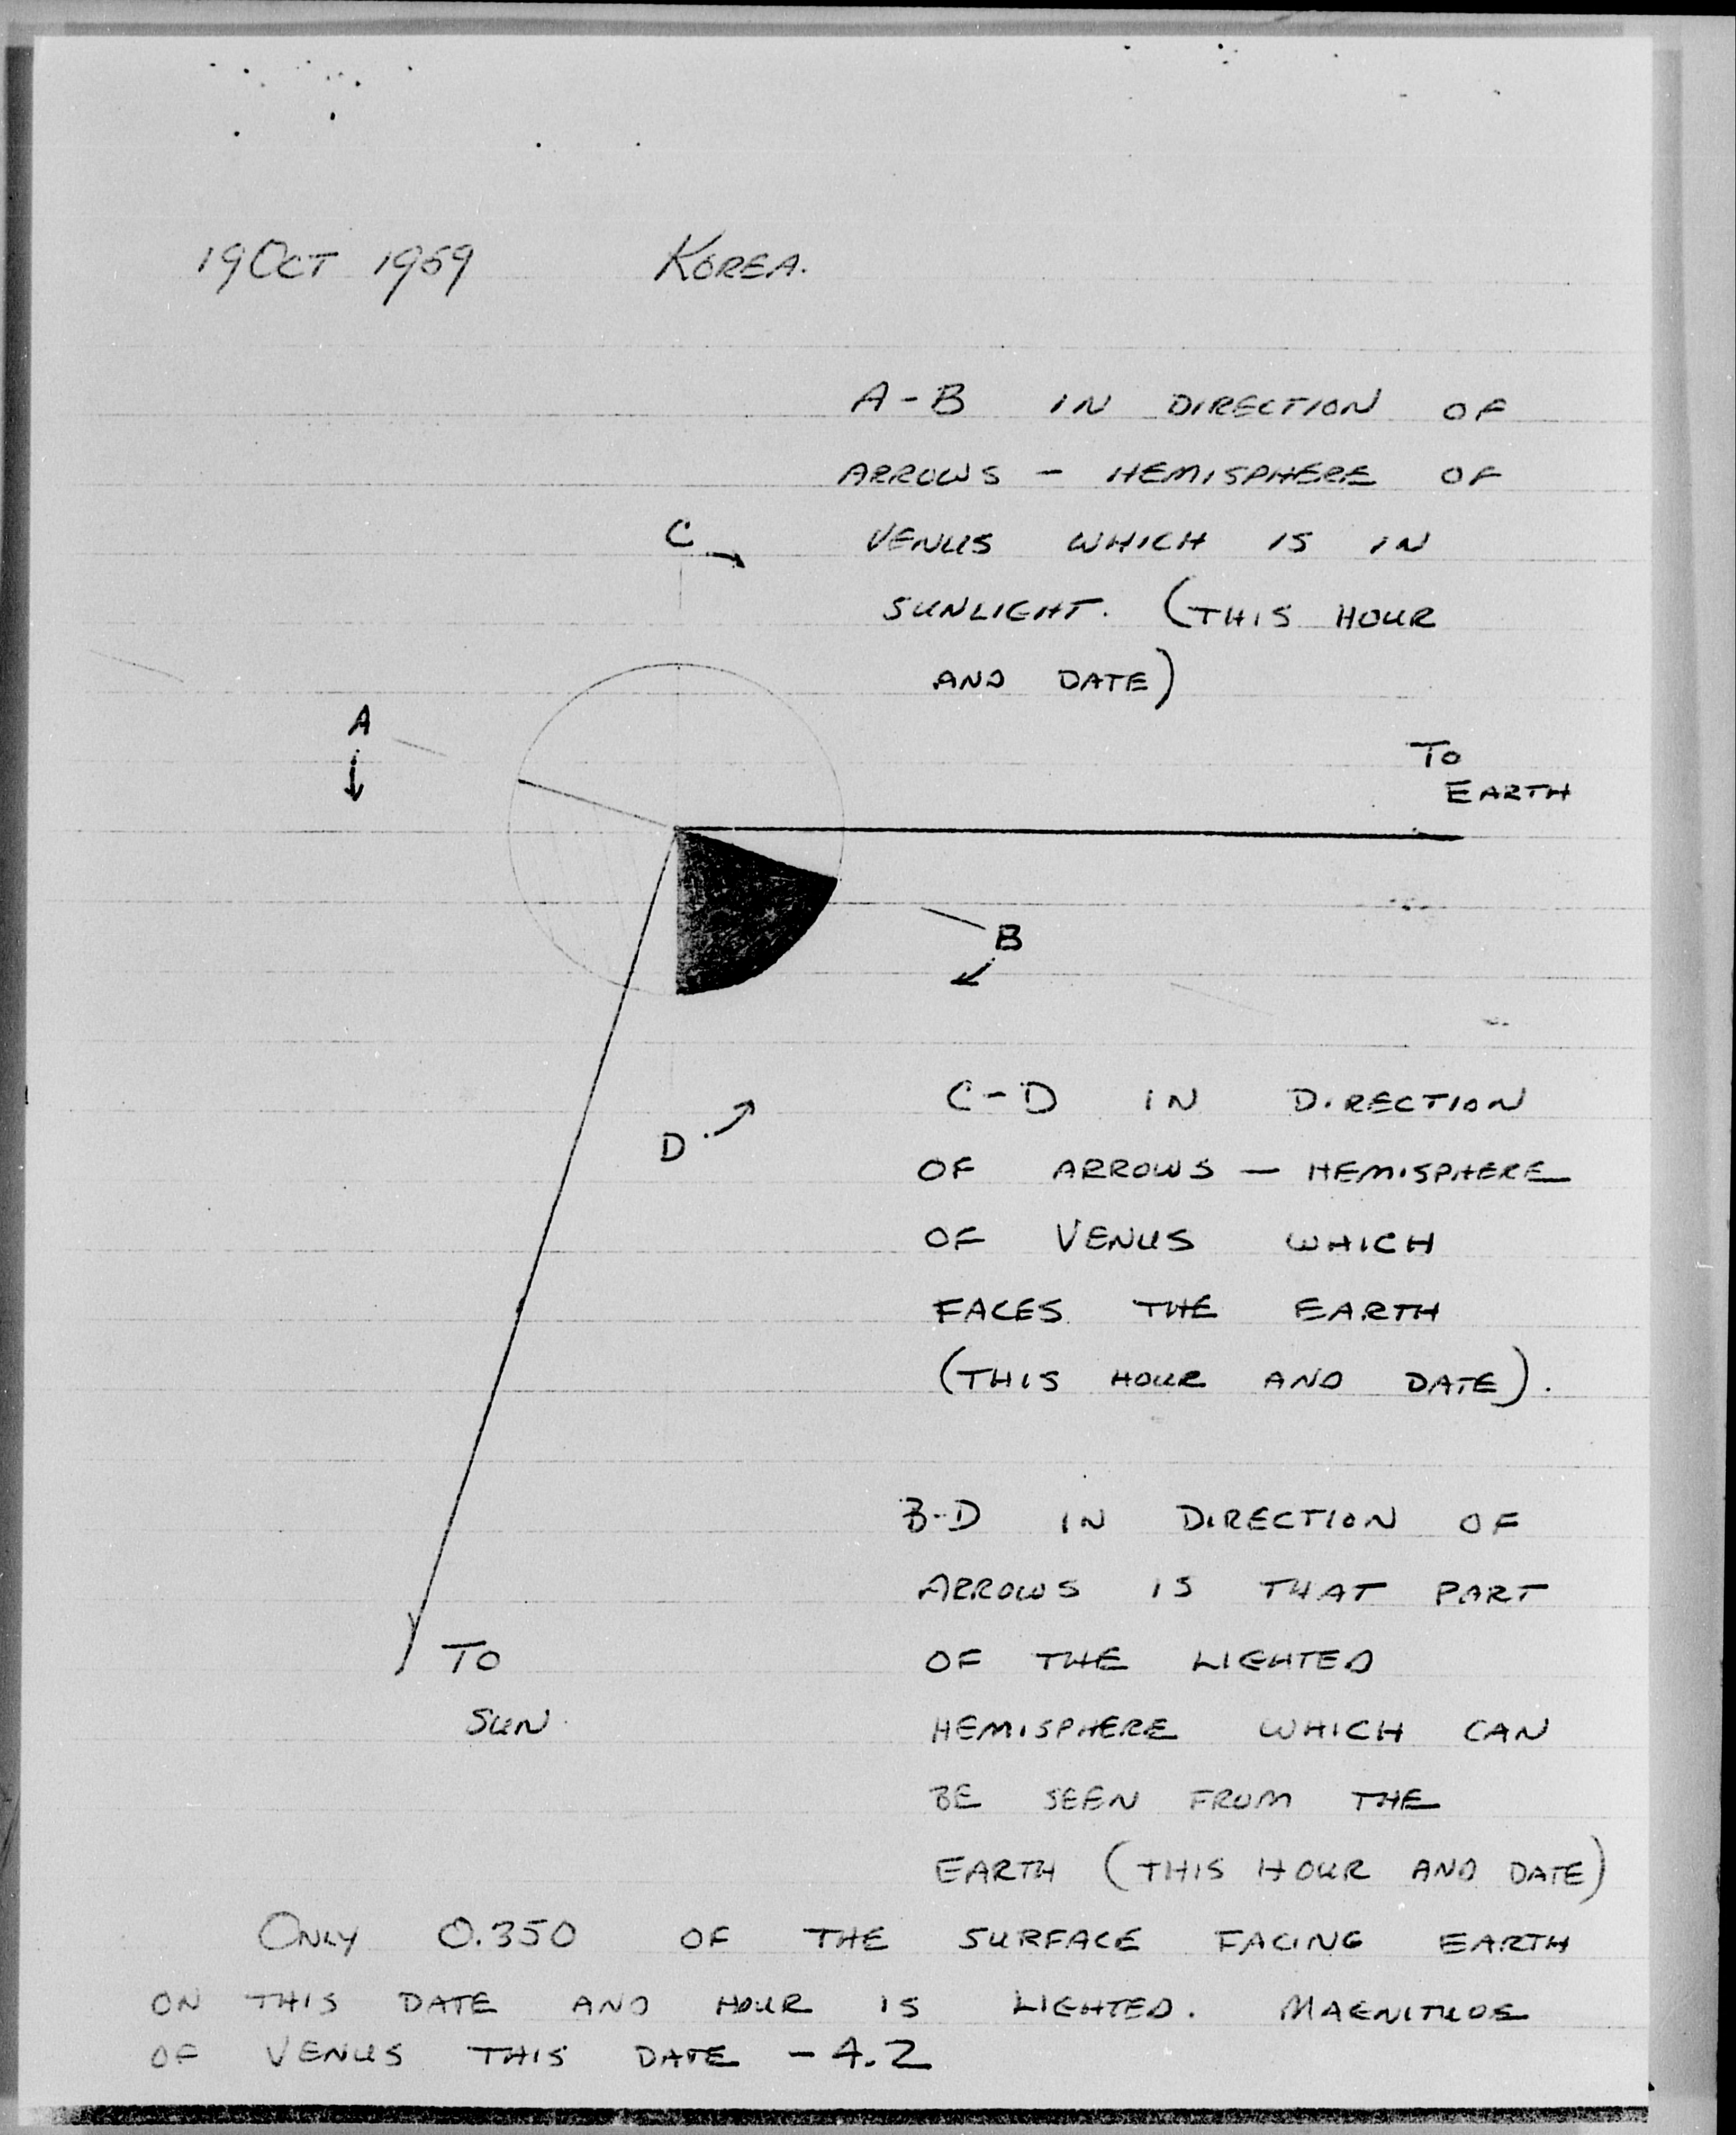 19 OCT 1959 KOREA.
A-B IN DIRECTION OF
ARROWS - HEMISPHERE OF
C
VENUS WHICH IS IN
SUNLIGHT. (THIS HOUR
AND DATE)
A
TO
EARTH
B
D
C-D IN DIRECTION
OF ARROWS - HEMISPHERE
OF VENUS WHICH
FACES THE EARTH
(THIS HOUR AND DATE).
B-D IN DIRECTION OF
ARROWS IS THAT PART
OF THE LIGHTED
HEMISPHERE WHICH CAN
BE SEEN FROM THE
EARTH (THIS HOUR AND DATE)
TO
SUN
ONLY 0.350 OF THE SURFACE FACING EARTH
ON THIS DATE AND HOUR IS LIGHTED. MAGNITUDE
OF VENUS THIS DATE -4.2